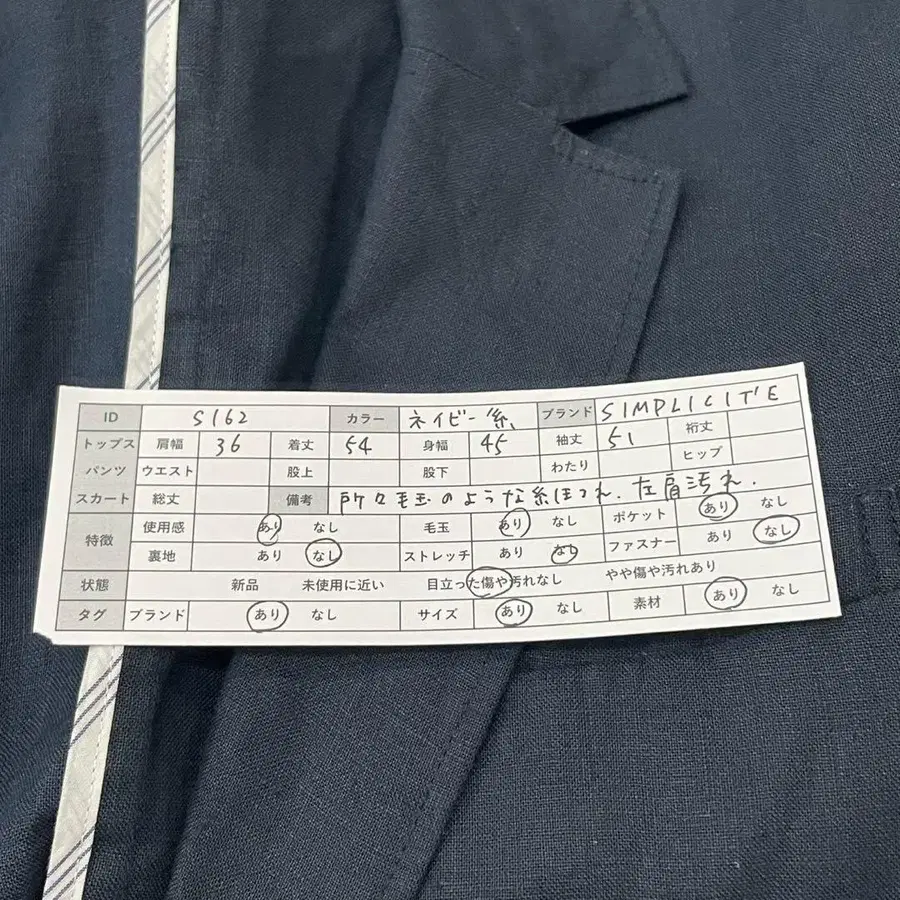 ID S162 カラー ネイビー系 ブランド SIMPLICITE
トップス 肩幅 36 着丈 54 身幅 45 袖丈 51 裄丈
パンツ ウエスト 股上 股下 わたり ヒップ
スカート 総丈 備考 所々毛玉のような糸ほつれ、左肩汚れ、
特徴 使用感 あり なし 毛玉 あり なし ポケット あり なし
裏地 あり なし ストレッチ あり なし ファスナー あり なし
状態 新品 未使用に近い 目立った傷や汚れなし やや傷や汚れあり
タグ ブランド あり なし サイズ あり なし 素材 あり なし